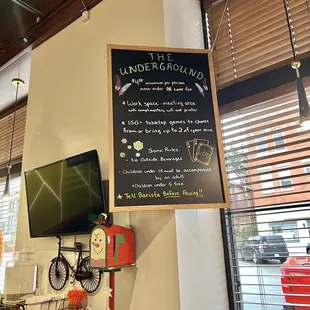 THE
UNDERGROUND
minimum per person
menu order OR cover fee
* Work space - meeting area
with complimentary wifi and printer
* 150+ tabletop games to choose
from or bring up to 2 of your own
Some Rules
- No Outside Beverages
- Children under 15 must be accompanied
by an adult
- Children under 5 free
* Tell Barista Before Paying!!!